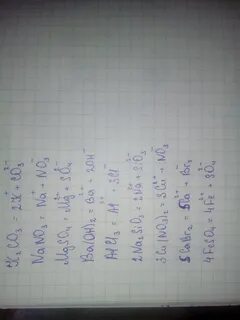 K₂CO₃ = 2K⁺ + CO₃²⁻
NaNO₃ = Na⁺ + NO₃⁻
MgSO₄ = Mg²⁺ + SO₄²⁻
Ba(OH)₂ = Ba²⁺ + 2OH⁻
AlCl₃ = Al³⁺ + 3Cl⁻
2Na₂SiO₃ = 2Na⁺ + SiO₃²⁻
3Cu(NO₃)₂ = 3Cu²⁺ + NO₃⁻
5CaBr₂ = 5Ca²⁺ + Br₂⁻
4FeSO₄ = 4Fe²⁺ + SO₄²⁻